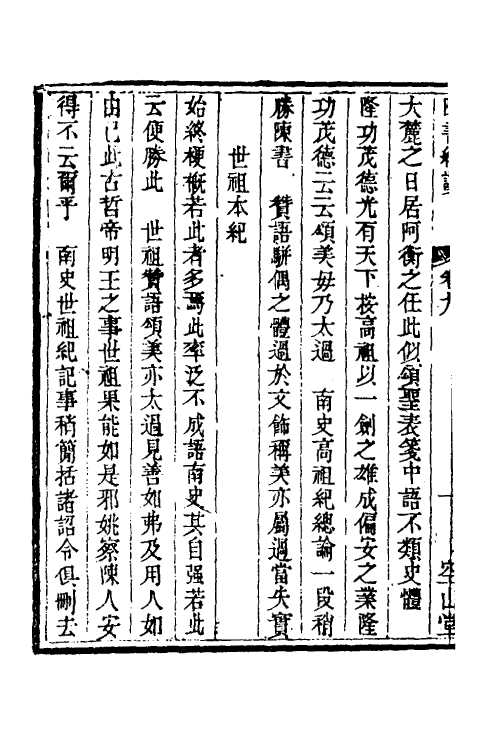 大麓之日居阿衡之任此似頌聖表箋中語不類史體
隆功茂德光有天下按高祖以一劍之雄成偏安之業隆
功茂德云云頌美毋乃太過　南史高祖紀總論一段稍
勝陳書　贊語駢偶之體過於文飾稱美亦屬過當失實
世祖本紀
始終梗概若此者多焉此率泛不成語南史其自强若此
云便勝此　世祖贊語頌美亦太過見善如弗及用人如
由己此古哲帝明王之事世祖果能如是邪姚察陳人安
得不云爾乎　南史世祖紀記事稍簡括諸詔令俱刪去